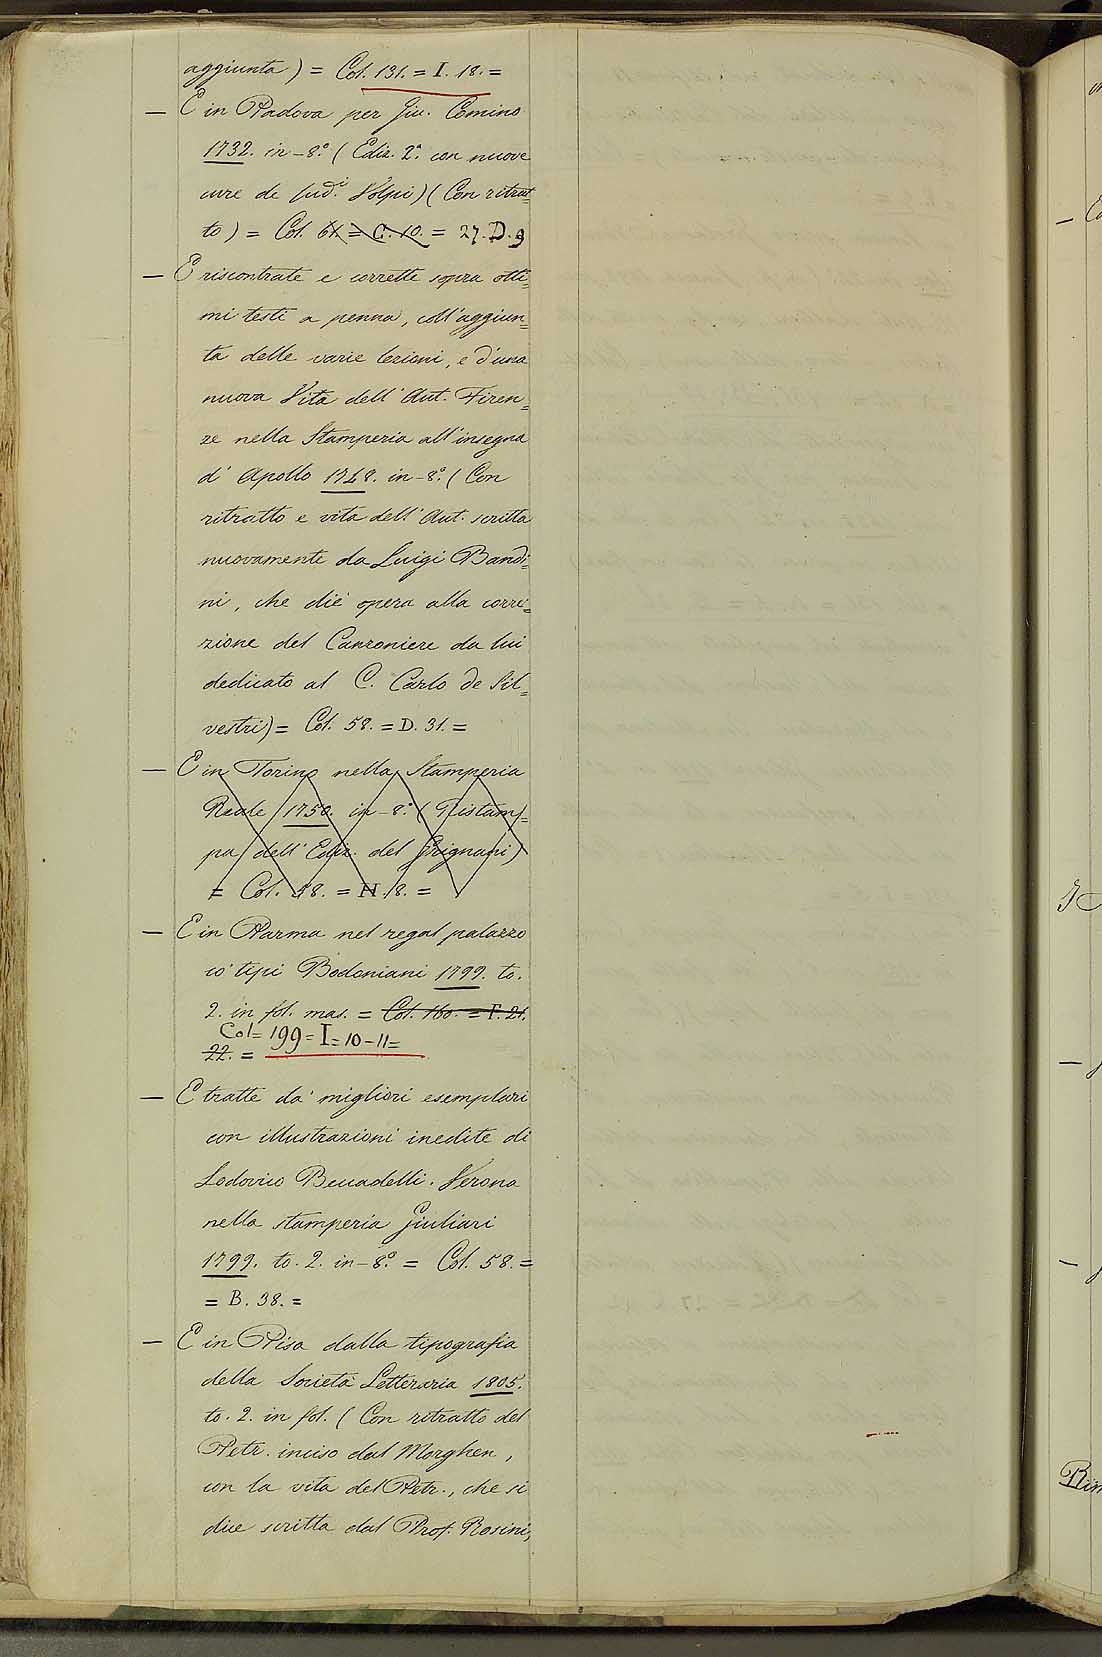 aggiunta) = Col. 131. = I. 18. =
— E in Padova per Giu. Comino
1732. in-8.° (Ediz. 2.ª con nuove
cure de sud.i Volpi) (Con ritrat=
to) = Col. 61. = C. 10. = 27. D. 9
— E riscontrate e corrette sopra otti=
mi testi a penna, coll'aggiun=
ta delle varie lezioni, e d'una
nuova Vita dell'Aut. Firen=
ze nella Stamperia all'insegna
d'Apollo 1748. in-8.° (Con
ritratto e vita dell'Aut. scritta
nuovamente da Luigi Bandi=
ni, che diè opera alla corre=
zione del Canzoniere da lui
dedicato al C. Carlo de Sil=
vestri) = Col. 58. = D. 31. =
— E in Torino nella Stamperia
Reale 1750. in-8.° (Ristam=
pa dell'Ediz. del Grignani)
= Col. 58. = H. 8. =
— E in Parma nel regal palazzo
co' tipi Bodoniani 1799. to.
2. in fol. mas. = Col. 160. = F. 21.
Col = 199 = I = 10 - 11 =
22. =
— E tratte da' migliori esemplari
con illustrazioni inedite di
Lodovico Beccadelli. Verona
nella stamperia Giuliari
1799. to. 2. in-8.° = Col. 58. =
= B. 38. =
— E in Pisa dalla tipografia
della Società Letteraria 1805.
to. 2. in fol. (Con ritratto del
Petr. inciso dal Morghen,
con la vita del Petr., che si
dice scritta dal Prof. Rosini,